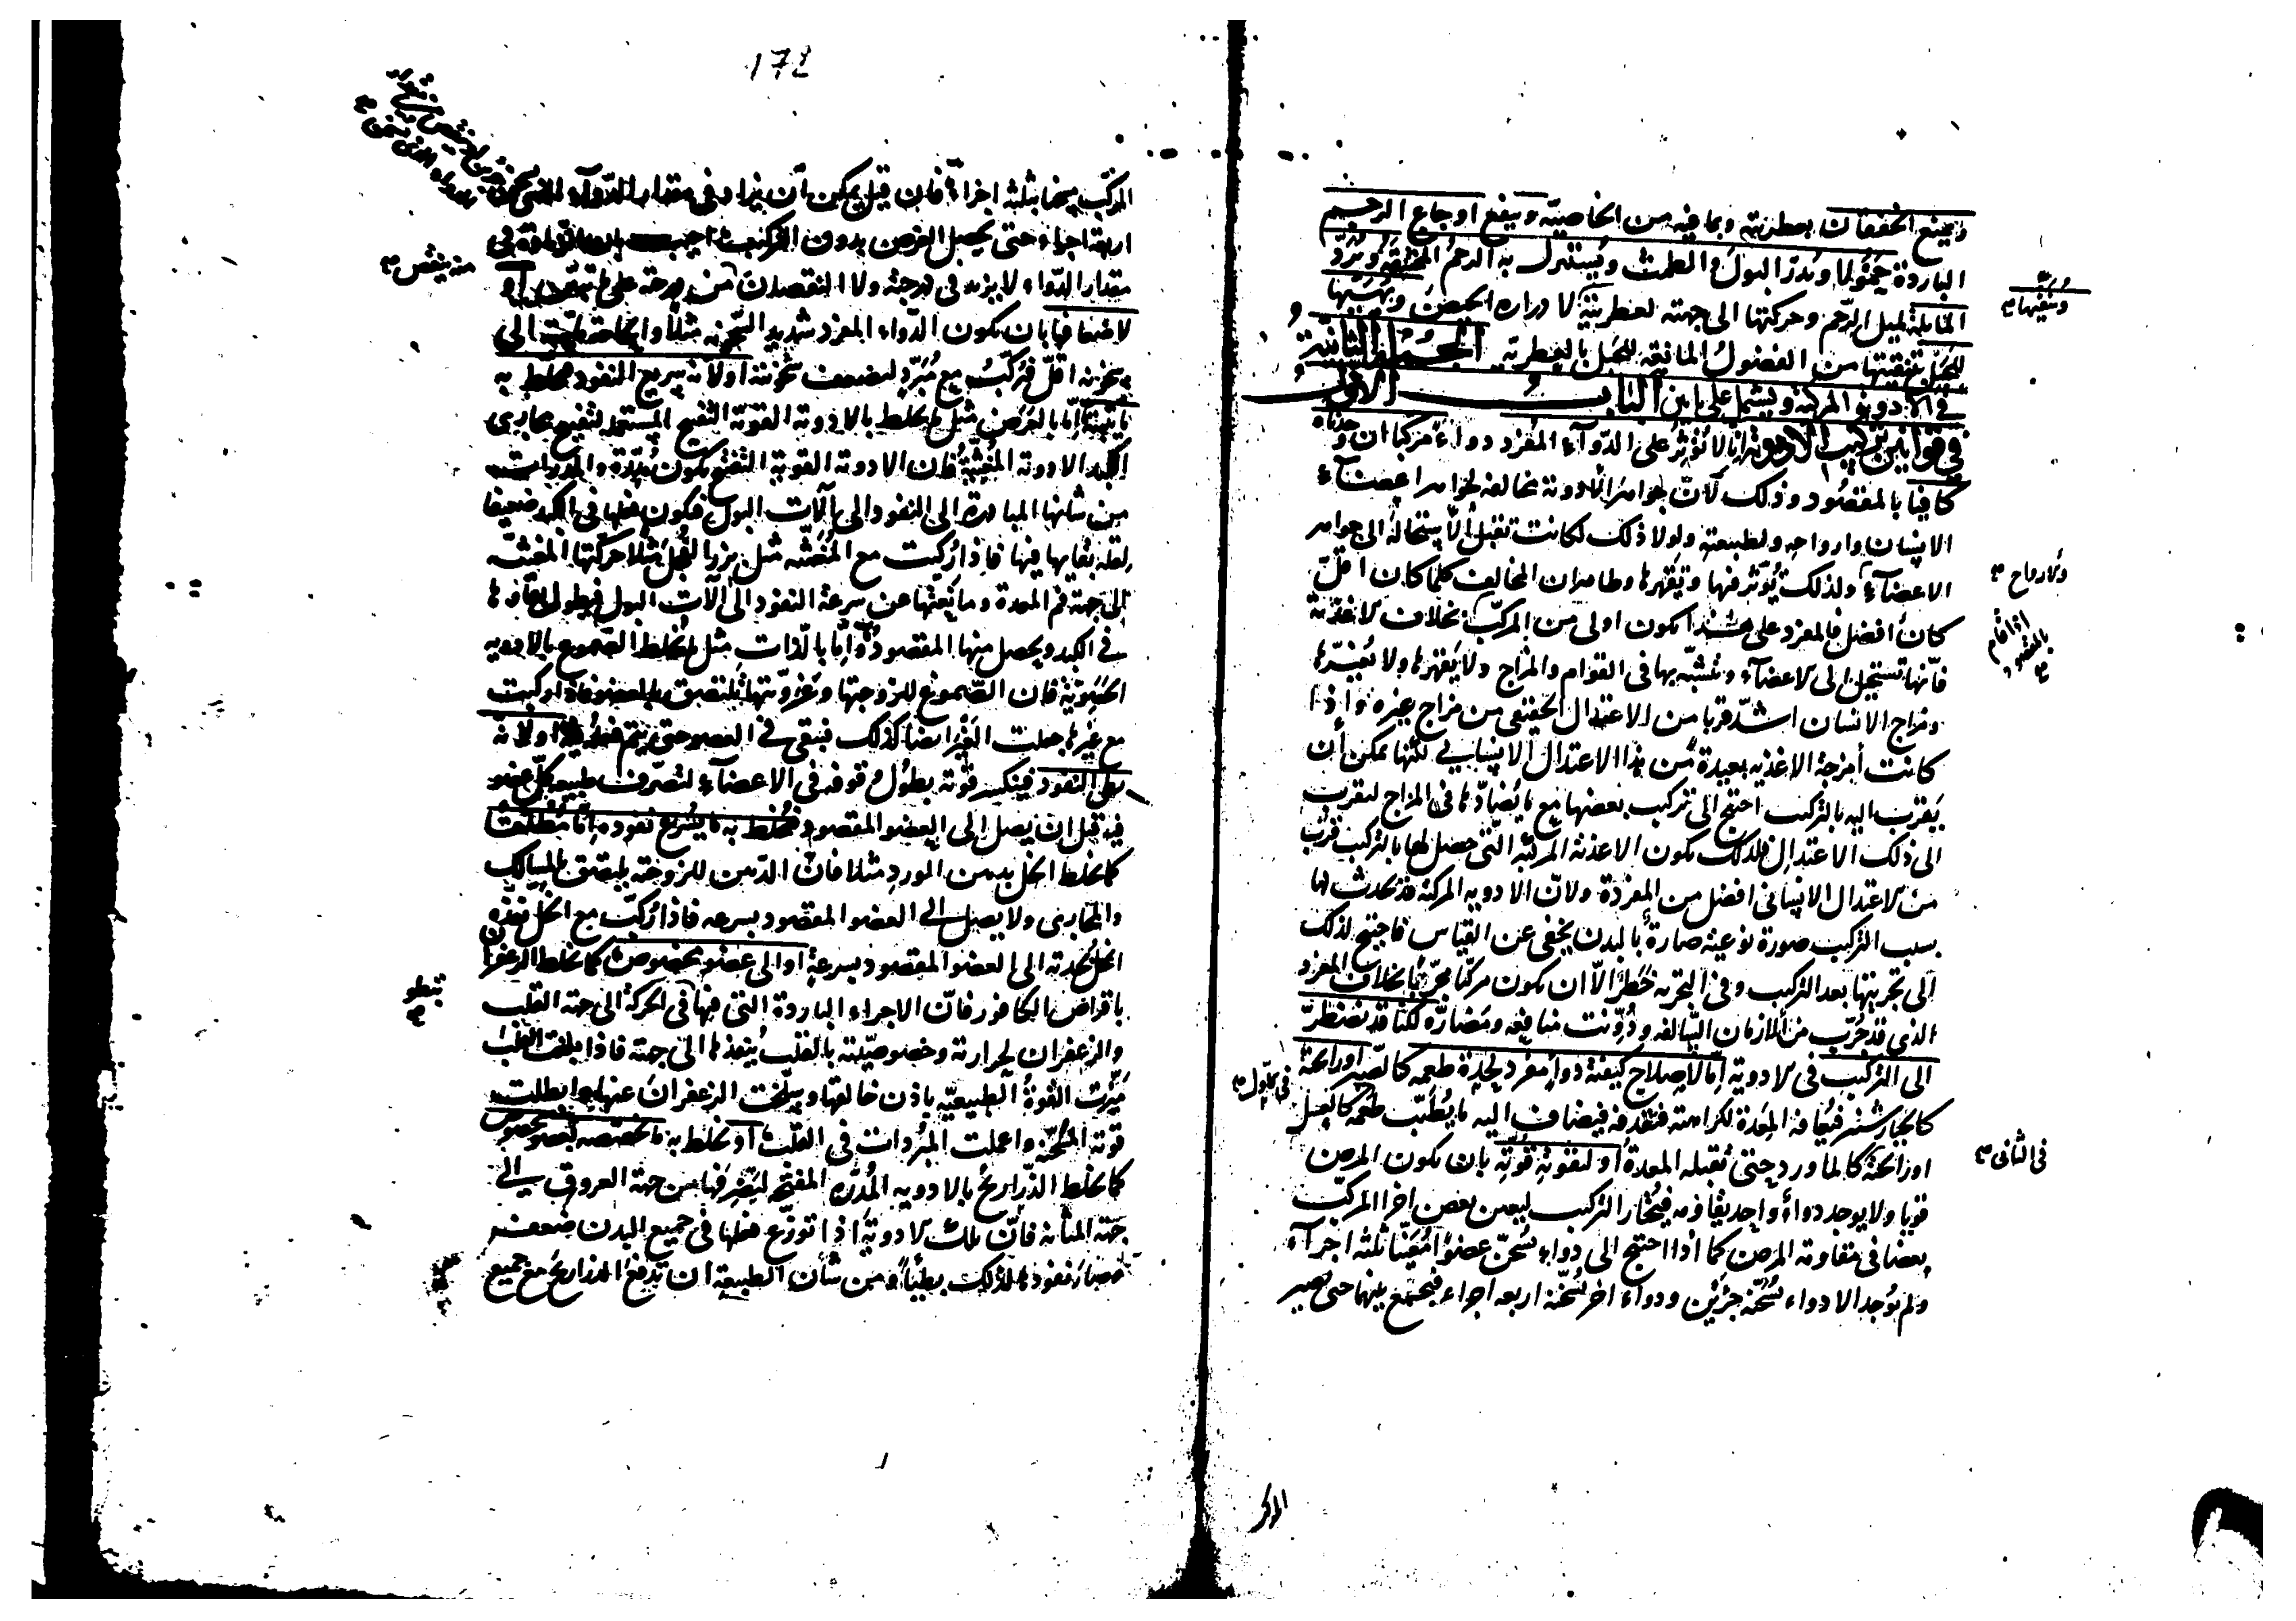 ويمنع الخفقان بعطريته وبما فيه من الخاصية وينفع اوجاع الرحم
الباردة حمولا ويدر البول والطمث ويستنزل به الرحم المختنقة ويرد
المائلة لميل الرحم وحركتها الى جهته لعطريته لادراره الحيض ويهيئها
للحبل بتنقيتها من الفضول المانعة للحبل بالعطرية الجملة الثانية
في الادوية المركبة ويشتمل على بابين الباب الاول
في قوانين تركيب الادوية انا لا نؤثر على الدواء المفرد دواء مركبا ان وجدناه
كافيا بالمقصود وذلك لان جواهر الادوية مخالفة لجواهر اعضاء
الانسان وارواحه ولطبيعته ولولا ذلك لكانت تقبل الاستحالة الى جواهر
الاعضاء ولذلك يؤثر فيها ويقهرها وظاهر ان المخالف كلما كان اقل
كان افضل فالمفرد على هذا يكون اولى من المركب بخلاف الاغذية
فانها تستحيل الى الاعضاء وتشبه بها في القوام والمزاج ولا يقهرها ولا يغيرها
ومزاج الانسان اشد قربا من الاعتدال الحقيقي من مزاج غيره واذا
كانت أمزجة الاغذية بعيدة من هذا الاعتدال الانساني لكنها يمكن أن
يقرب اليه بالتركيب احتيج الى تركيب بعضها مع ما يضادها في المزاج ليقرب
الى ذلك الاعتدال فلذلك يكون الاغذية المركبة التي حصل لها بالتركيب قرب
من الاعتدال الانساني افضل من المفردة ولان الادوية المركبة قد يحدث لها
بسبب التركيب صورة نوعية ضارة بالبدن يخفى عن القياس فاحتيج لذلك
الى تجربتها بعد التركيب وفي التجربة خطر الا ان يكون مركبا مجربا بخلاف المفرد
الذي قد جرب من الازمان السالفة ودونت منافعه ومضاره لكنا قد نضطر
الى التركيب في الادوية اما لاصلاح كيفية دواء مفرد لحدة طعمه كالصبر او رائحة
كالخيار شنبر فيعافه المعدة لكراهته فتقذفه فيضاف اليه ما يطيب طعمه كالعسل
او رائحة كالماورد حتى تقبله المعدة او لتقوية قوته بان يكون المرض
قويا ولا يوجد دواء واحد يقاومه فيختار التركيب ليعين بعض اجزا المركب
بعضا في مقاومة المرض كما اذا احتيج الى دواء يسخن عضوا معينا ثلثه اجزاء
ولم يوجد الا دواء يسخنه جزئين ودواء اخر يسخنه اربعه اجزاء فيجمع بينهما حتى يصير
ويسفيها
وارواح
اذا قام بالمقصود
في الاول
في الثاني
المركب
172
المركب مسخنا بثلثة اجزاء فان قيل يمكن أن يزاد في مقدار الدواء المسخن
اربعة اجزاء حتى يحصل الغرض بدون التركيب اجيب بان الزيادة في
مقدار الدواء لا يزيد في درجته ولا النقصان من درجته على ما تبين او
لاضعافها بان يكون الدواء المفرد شديد السخونة مثلا والحاجة ماسة الى
سخونة اقل فيركب مع مبرد ليضعف سخونته او لانه سريع النفوذ فيخلط به
ما يثبته اما بالعرض مثل ما يخلط بالادوية القوية التفتيح المستعملة لتفتيح مجاري
الكبد الادوية المغثية فان الادوية القوية التفتيح يكون مدرة والمدرات
من شانها المبادرة الى النفوذ الى آلات البول فيكون فعلها في الكبد ضعيفا
لقلة بقايها فيها فاذا ركبت مع المغثية مثل بزر الفجل مثلا حركتها المغثية
الى جهة فم المعدة ومانعتها عن سرعة النفوذ الى آلات البول فيطول بقاؤها
في الكبد ويحصل منها المقصود واما بالذات مثل ما يخلط الصموغ بالادوية
فان الصموغ للزوجتها وغرويتها تلتصق بالعضو فاذا ركبت
مع غيرها جعلت الغير ايضا كذلك فتبقى في العضو حتى يتم فعلها او لانه
بطي النفوذ فينكسر قوته بطول وقوفه في الاعضاء لتصرف طبيعة كل عضو
فيه قبل ان يصل الى العضو المقصود فيخلط به ما يسرع نفوذه اما مطلقا
كما يخلط الخل بدهن الورد مثلا فان الدهن للزوجته يلتصق بالمسالك
والمجاري ولا يصل الى العضو المقصود بسرعه فاذا ركب مع الخل نفذه
الخل بحدته الى العضو المقصود بسرعة او الى عضو مخصوص كما يخلط الزعفران
باقراص الكافور فان الاجزاء الباردة التي فيها في الحركة الى جهة القلب
والزعفران لحرارته وخصوصيته بالقلب ينفذها الى جهته فاذا بلغت القلب
ميزت القوة الطبيعية باذن خالقها وسلخت الزعفران عنها وابطلت
قوته المسخنة واعملت المبردات في القلب او يخلط به ما يخصصه بعضو مخصوص
كما يخلط الذراريح بالادوية المدرة المفتحة ليصرفها من جهة العروق الى
جهة المثانة فان تلك الادوية اذا توزع فعلها في جميع البدن ضعفت
وصار نفوذها لذلك بطيئا ومن شأن الطبيعة ان تدفع الذراريح مع جميع
منه ينقص
تبطو